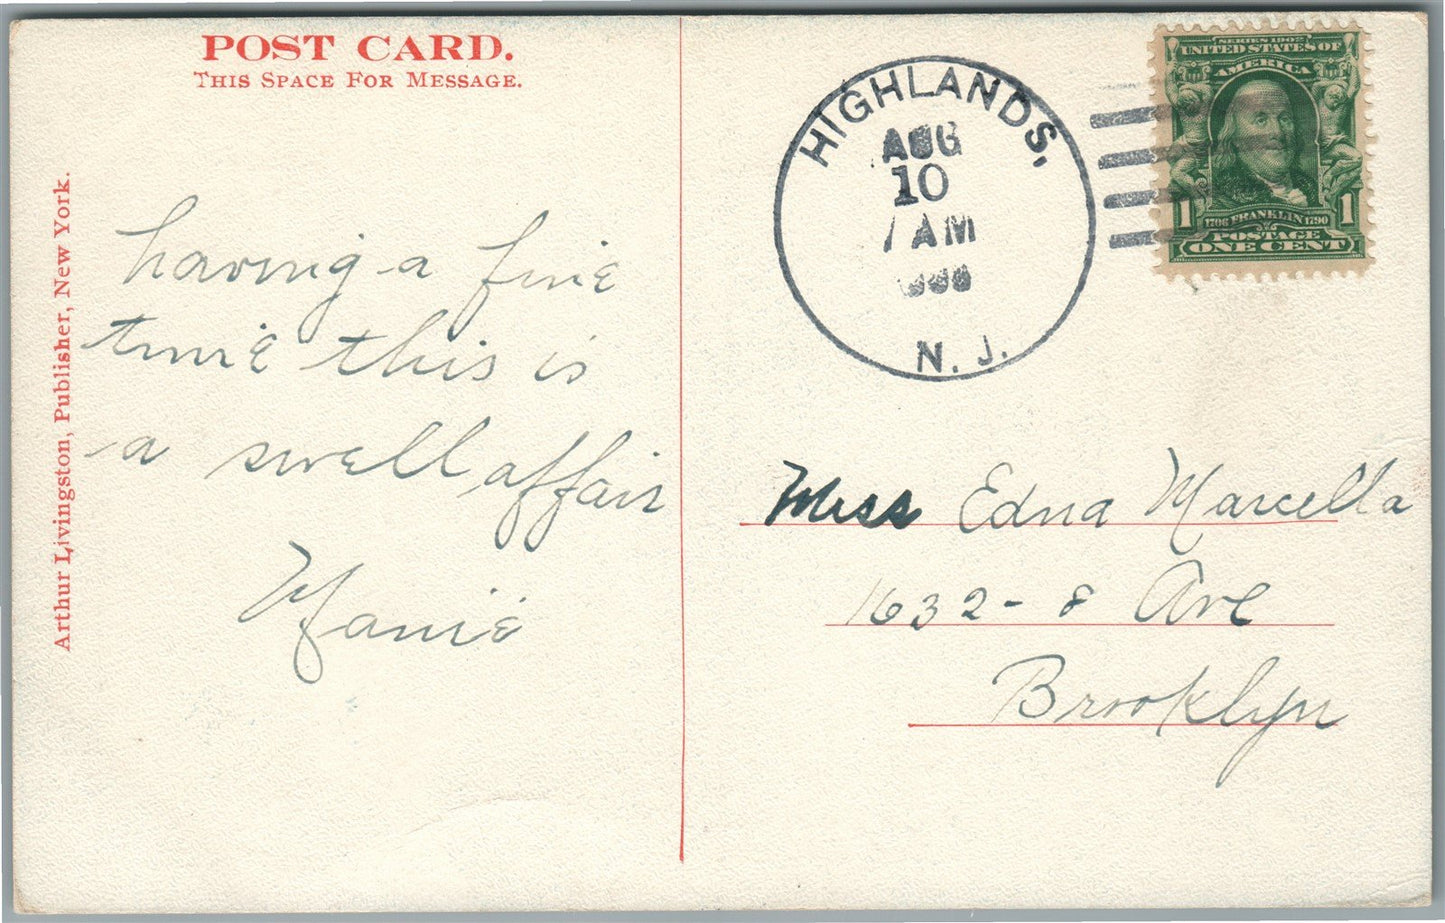 POST CARD.
THIS SPACE FOR MESSAGE.
Arthur Livingston, Publisher, New York.
having a fine
time this is
a swell affair
Mamie
HIGHLANDS,
AUG
10
AM
N. J.
SERIES 1902
UNITED STATES OF
AMERICA
1 1
1706 FRANKLIN 1790
POSTAGE
ONE CENT
Miss Edna Marcella
1632 - 8 Ave
Brooklyn